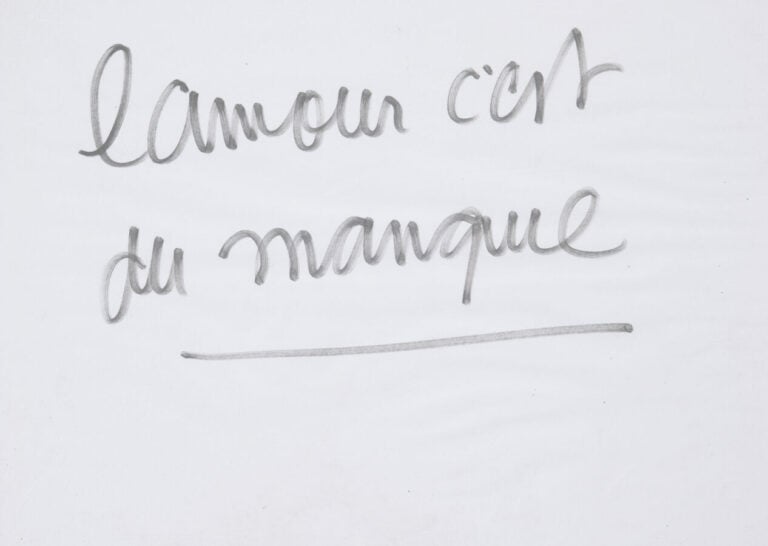 lamour c'est
du manque